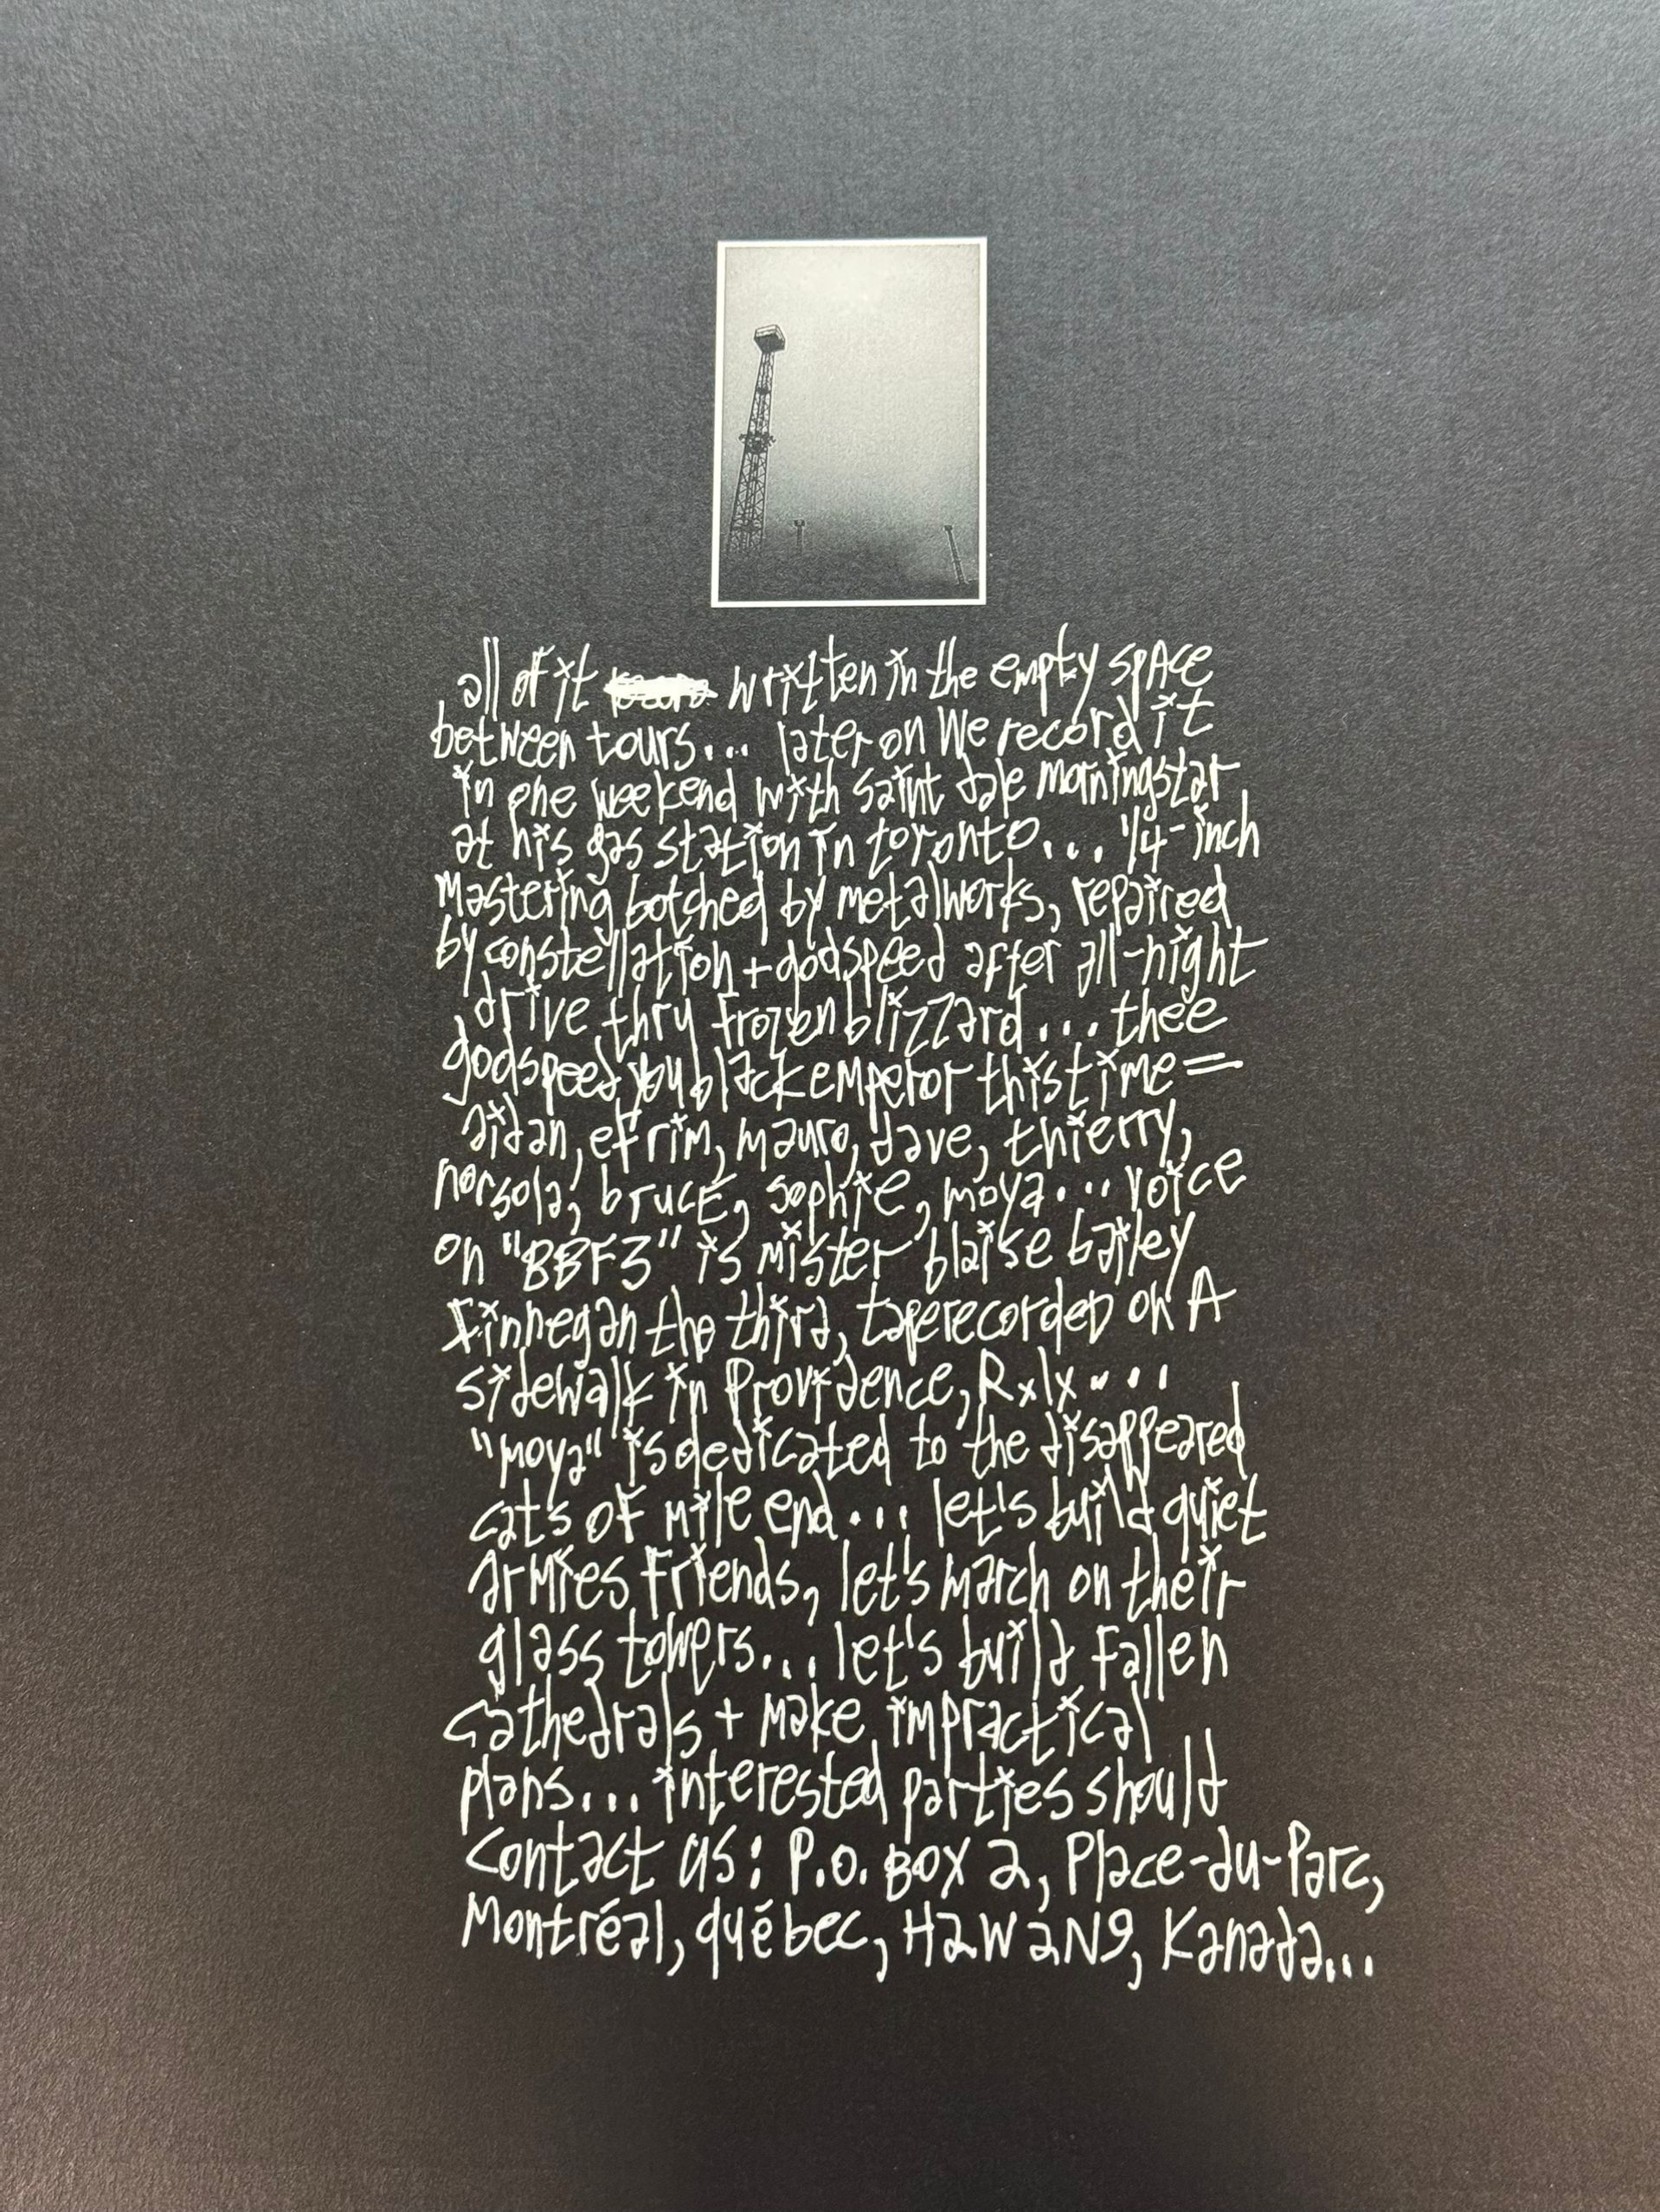 all of it written in the empty spAce
between tours... later on We record it
in one weekend with saint dale morningstar
at his gas station in toronto... 1/4-inch
Mastering botched by metalworks, repaired
by constellation + godspeed after all-night
drive thru frozen blizzard... thee
godspeed you black emperor this time =
aidan, efrim, mauro, dave, thierry,
norsola, brucE, sophie, moya... voice
on "BBF3" is mister blaise bailey
finnegan the third, taperecordeD on A
sidewalk in Providence, RxIx....
"moya" is dedicated to the disappeared
cats of mile end... let's build quiet
armies friends, let's march on their
glass towers... let's build fallen
cathedrals + make impractical
plans... interested parties should
contact us: P.O. BOX 2, Place-du-Parc,
Montréal, québec, H2W 2N9, Kanada...